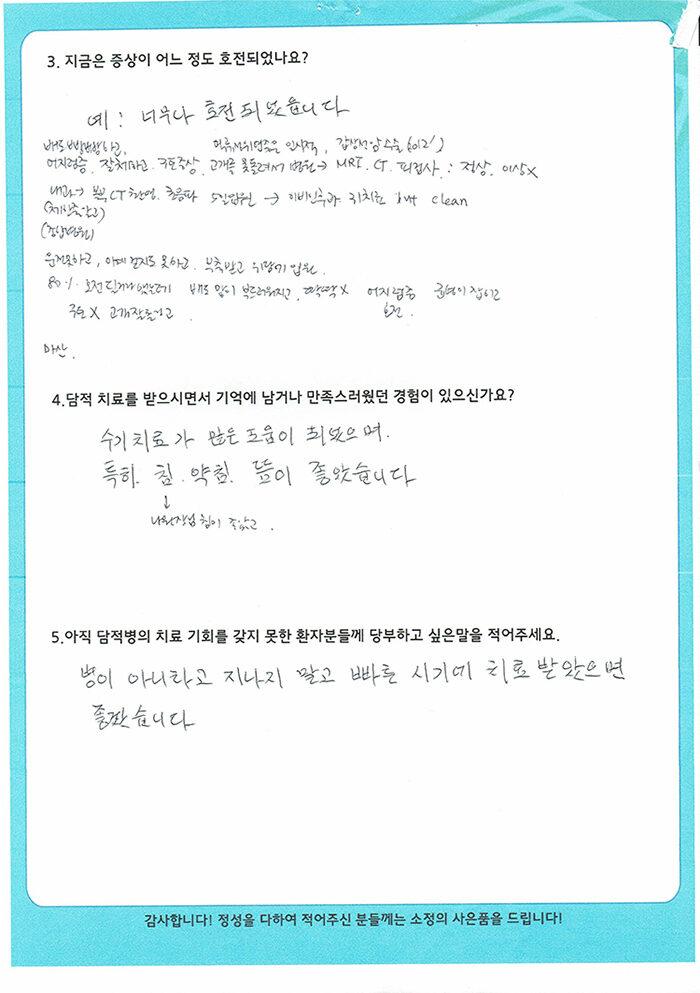 3. 지금은 증상이 어느 정도 호전되었나요?
예! 너무나 호전 되었읍니다
배도 빵빵하고, 역류성식도염증은 갑상선암수술 (2012')
어지럼증, 잘체하고 구토증상, 고개를 못돌려서 병원→ MRI. CT. 피검사 : 정상, 이상X
내과→ 복부CT촬영. 초음파 5일입원 → 이비인후과 but clean
(중앙병원)
운전못하고, 아예 걷지도 못하고. 부축받고 입원.
80% 호전 배도 많이 부드러워지고, 딱딱X 어지럼증 균형이 잡히고
구토X 고개잘돌리고 호전.
마산.
4.담적 치료를 받으시면서 기억에 남거나 만족스러웠던 경험이 있으신가요?
수기치료가 많은 도움이 되었으며.
특히. 침. 약침. 뜸이 좋았습니다
↓
나원장님 침이 좋았고.
5.아직 담적병의 치료 기회를 갖지 못한 환자분들께 당부하고 싶은말을 적어주세요.
병이 아니라고 지나지 말고 빠른 시기에 치료 받았으면
좋겠습니다
감사합니다! 정성을 다하여 적어주신 분들께는 소정의 사은품을 드립니다!